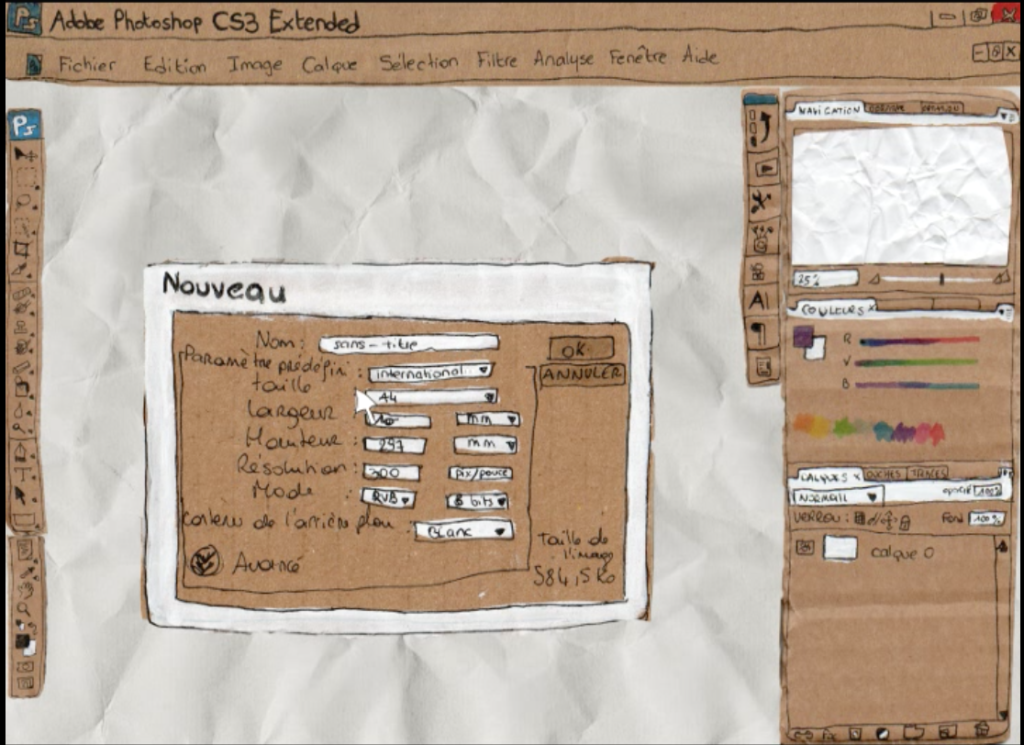 Ps Adobe Photoshop CS3 Extended
Fichier Edition Image Calque Sélection Filtre Analyse Fenêtre Aide
Ps
NAVIGATION
25%
COULEURS x
R
V
B
Nouveau
Nom : sans-titre
OK
Paramètre prédéfini : international
ANNULER
taille A4
Largeur mm
Hauteur : 297 mm
Résolution : 300 pix/pouce
Mode : RVB 8 bits
contenu de l'arrière plan : Blanc
Avancé
Taille de
l'image
584,5 Ko
T
A
CALQUES x COUCHES TRACES
NORMAL opacité 100%
VERROU : Fond 100%
calque 0